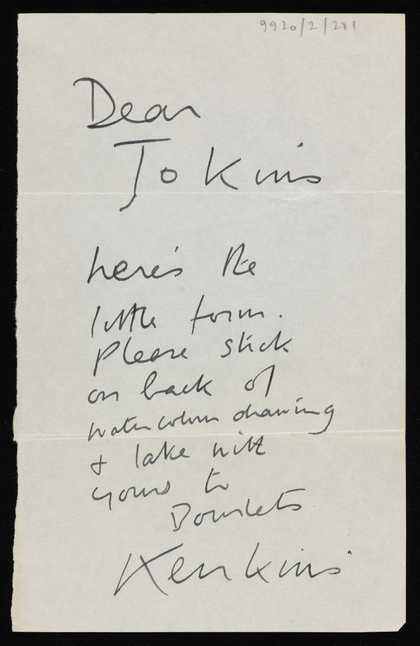 9920/2/281
Dear
Jo Kins
here's the
little form.
Please stick
on back of
watercolour drawing
& take with
yours to
Bourlets
Kenkins